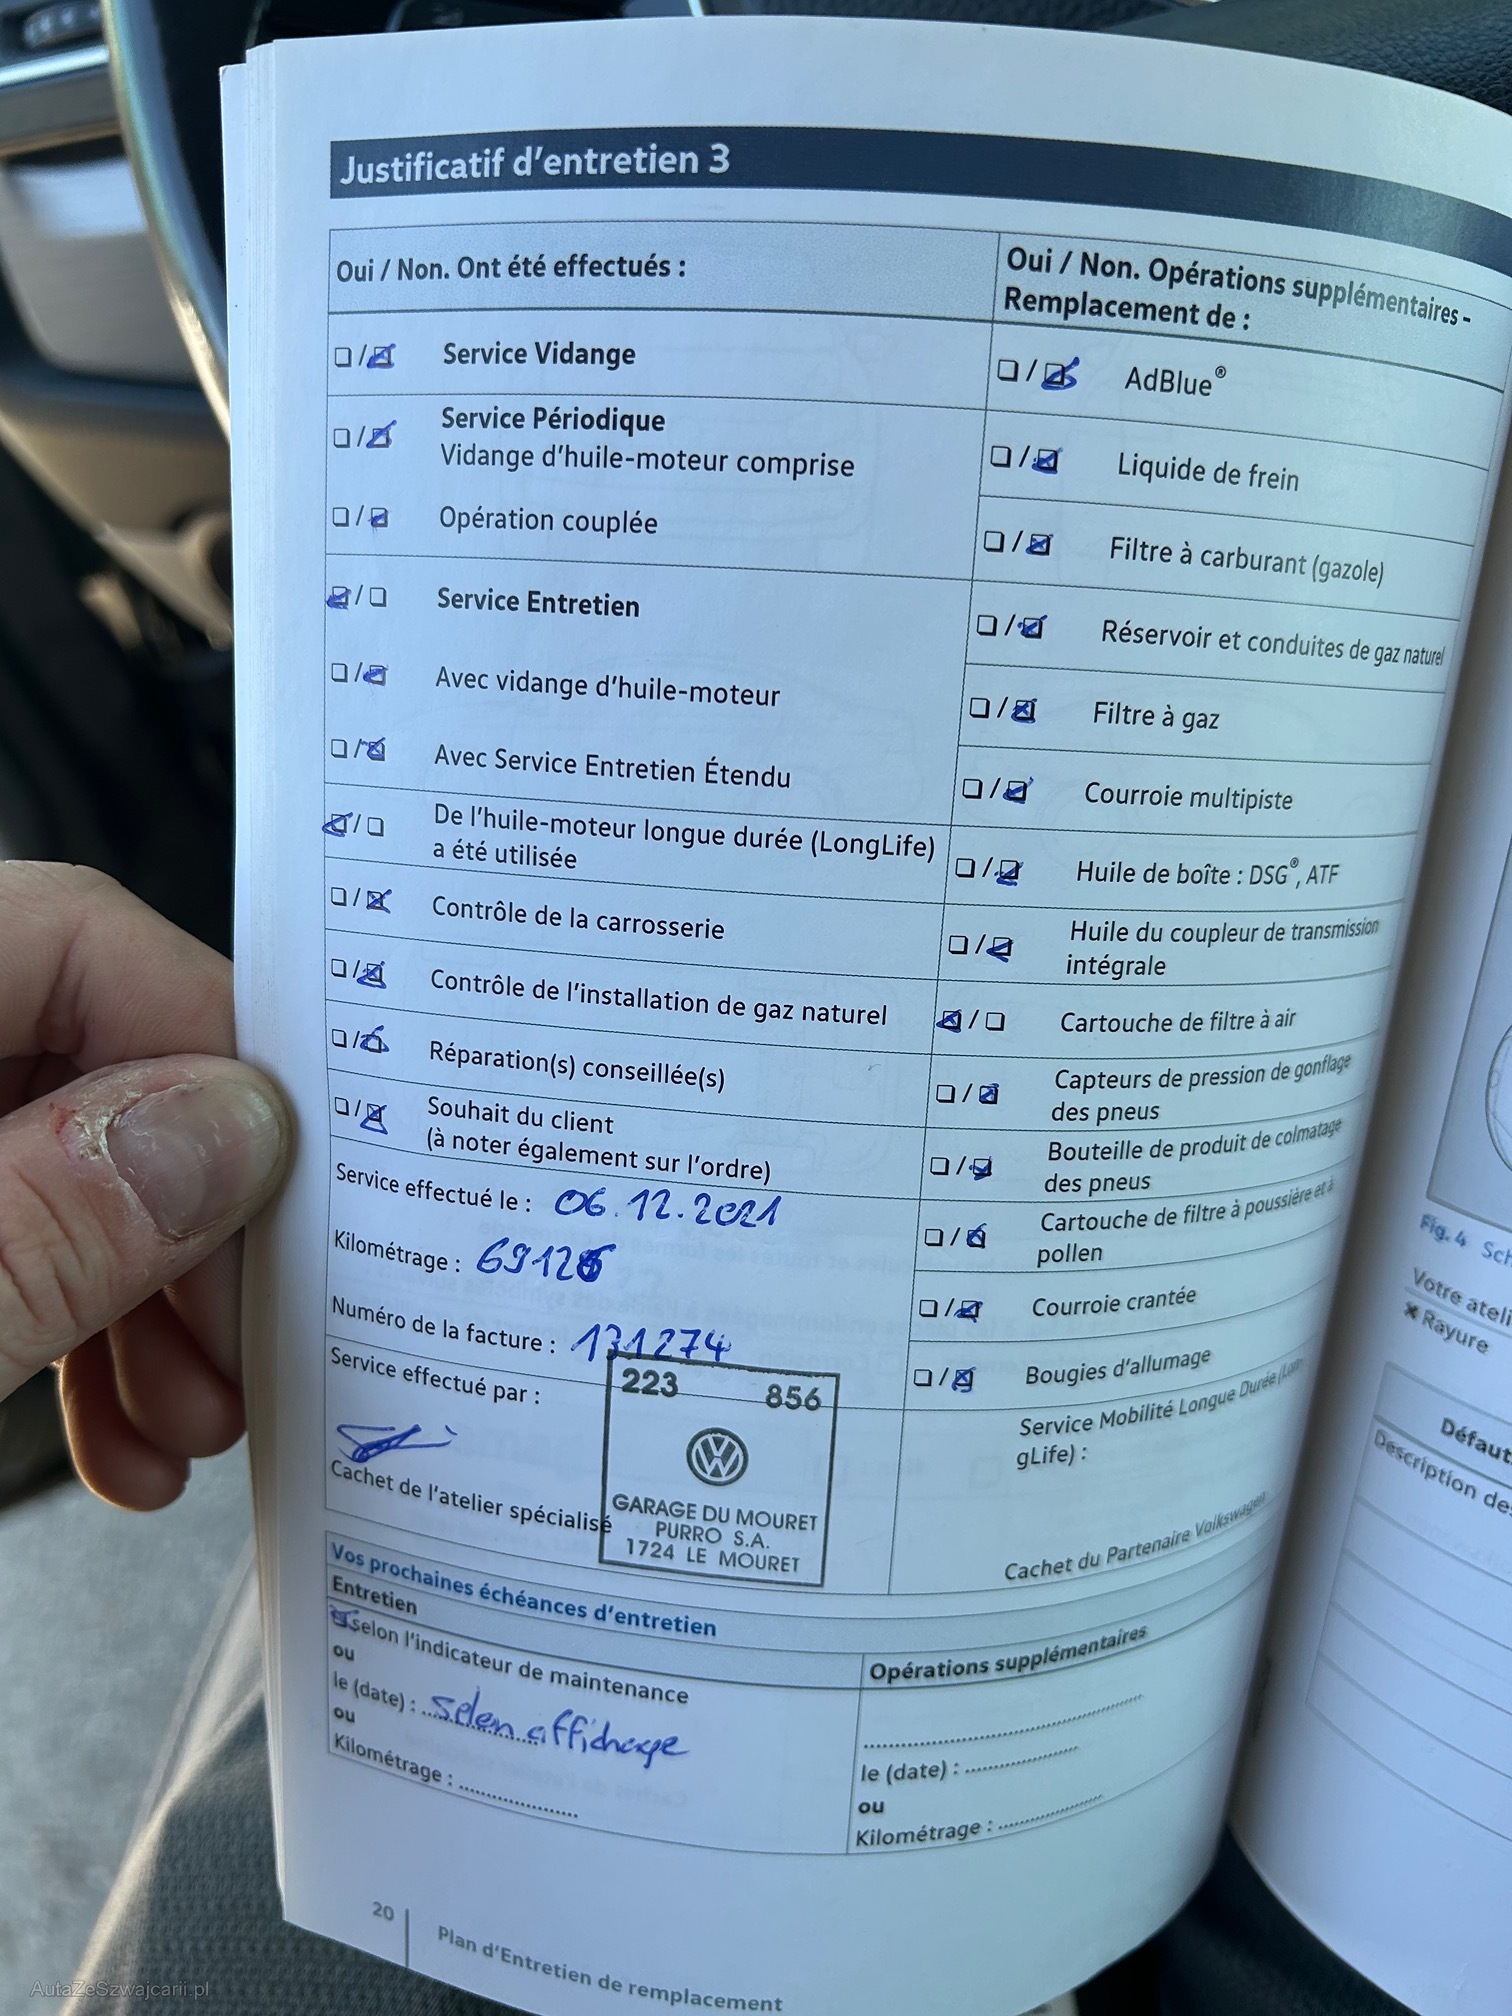 Justificatif d'entretien 3
Oui / Non. Ont été effectués :
Service Vidange
Service Périodique
Vidange d'huile-moteur comprise
Opération couplée
Service Entretien
Avec vidange d'huile-moteur
Avec Service Entretien Étendu
De l'huile-moteur longue durée (LongLife)
a été utilisée
Contrôle de la carrosserie
Contrôle de l'installation de gaz naturel
Réparation(s) conseillée(s)
Souhait du client
(à noter également sur l'ordre)
Service effectué le : 06.12.2021
Kilométrage : 69126
Numéro de la facture : 131274
Service effectué par :
Cachet de l'atelier spécialisé
223 856
GARAGE DU MOURET
PURRO S.A.
1724 LE MOURET
Oui / Non. Opérations supplémentaires -
Remplacement de :
AdBlue®
Liquide de frein
Filtre à carburant (gazole)
Réservoir et conduites de gaz naturel
Filtre à gaz
Courroie multipiste
Huile de boîte : DSG®, ATF
Huile du coupleur de transmission
intégrale
Cartouche de filtre à air
Capteurs de pression de gonflage
des pneus
Bouteille de produit de colmatage
des pneus
Cartouche de filtre à poussière et à
pollen
Courroie crantée
Bougies d'allumage
Service Mobilité Longue Durée (Lon-
gLife) :
Cachet du Partenaire Volkswagen
Vos prochaines échéances d'entretien
Entretien
selon l'indicateur de maintenance
ou
le (date) : selon affichage
ou
Kilométrage :
Opérations supplémentaires
le (date) :
ou
Kilométrage :
20
Plan d'Entretien de remplacement
Fig. 4
Votre
Rayure
Description
AutaZeSzwajcarii.pl